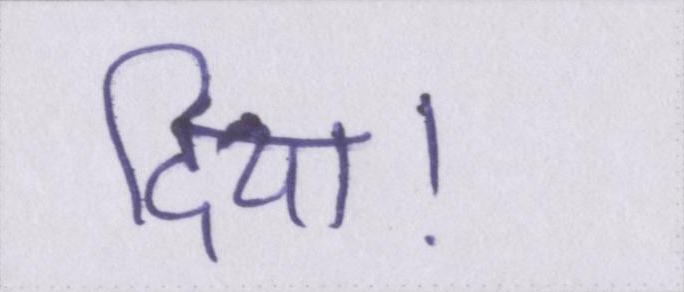 दिया!